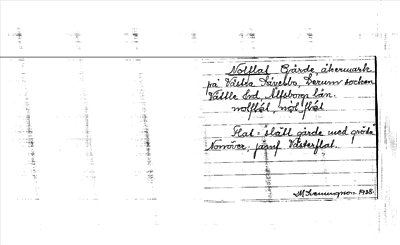 Nolflat Gärde åkermark
på Västra Sävebo, Lerum socken
Vättle hd, Älfsborgs län.
nolflat, nol flat
Flat = slätt gärde med gröda
Norröver, jämf Västerflat.
1938.